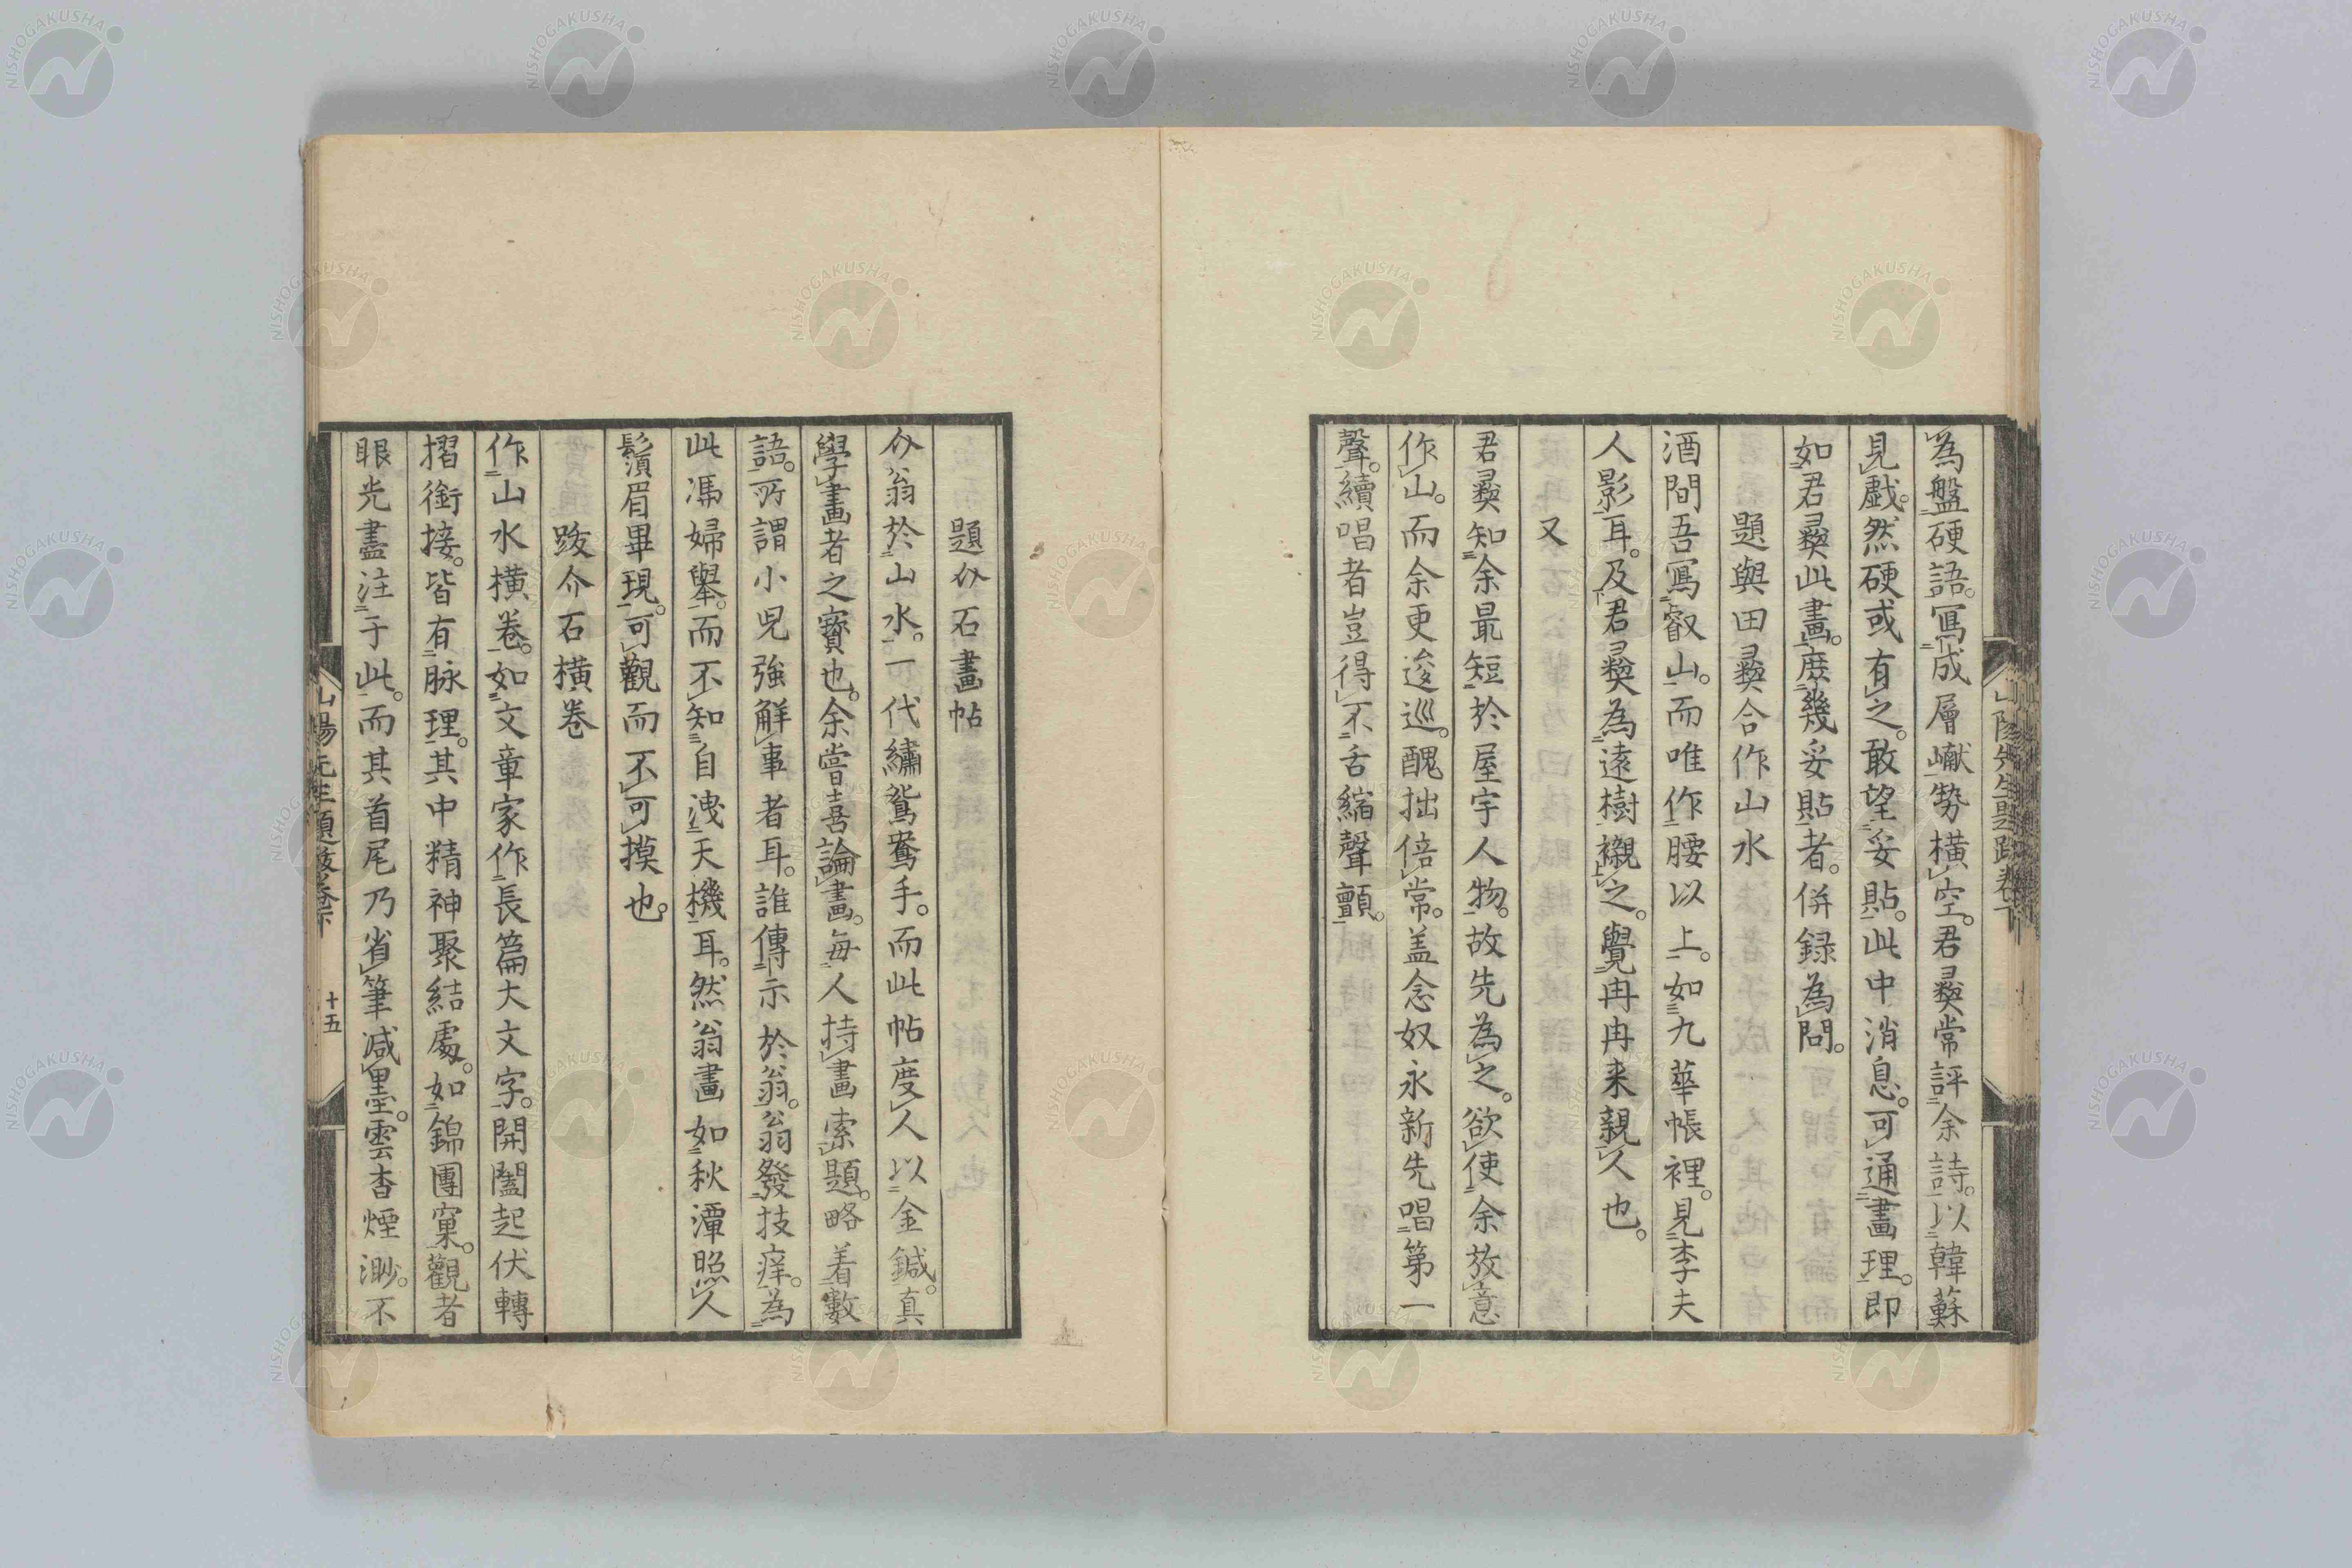 為盤硬語。寫成層巘勢橫空。君彞常評余詩。以韓蘇
見戲。然硬或有之。敢望妥貼。此中消息。可通畫理。即
如君彞此畫。庶幾妥貼者。併録為問。
題與田彞合作山水
酒間吾寫叡山。而唯作腰以上。如九華帳裡。見李夫
人影耳。及君彞為遠樹襯之。覺冉冉来親人也。
又
君彞知余最短於屋宇人物。故先為之。欲使余放意
作山。而余更逡巡。醜拙倍常。盖念奴永新先唱第一
聲。續唱者豈得不舌縮聲顫。
山陽先生題跋卷下
題介石畫帖
介翁於山水。一代繡鴛鴦手。而此帖度人以金鍼。真
學畫者之寶也。余嘗喜論畫。每人持畫索題。略着數
語。所謂小兒強解事者耳。誰傳示於翁。翁發技痒。為
此馮婦舉。而不知自洩天機耳。然翁畫如秋潭照人
鬚眉畢現。可觀而不可摸也。
跋介石橫卷
作山水橫卷。如文章家作長篇大文字。開闔起伏轉
摺銜接。皆有脉理。其中精神聚結處。如錦團窠。觀者
眼光盡注于此。而其首尾乃省筆減墨。雲杳煙渺。不
山陽先生題跋卷下 十五
NISHOGAKUSHA